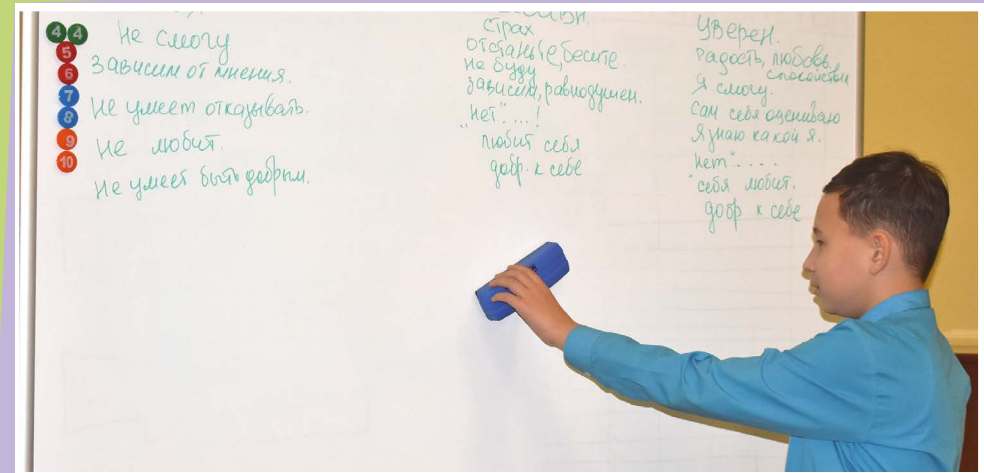 4 4
5
6
7
8
9
10
Не смогу
Зависим от мнения.
Не умеет отказывать.
Не любит.
Не умеет быть добрым.
Страх
отстаньте, бесите.
не буду
зависим, равнодушен.
"нет"....!
любит себя
добр. к себе
уверен.
радость, любовь,
спокойствие
Я смогу.
Сам себя оцениваю
Я знаю какой я.
"нет"....
себя любит.
добр к себе